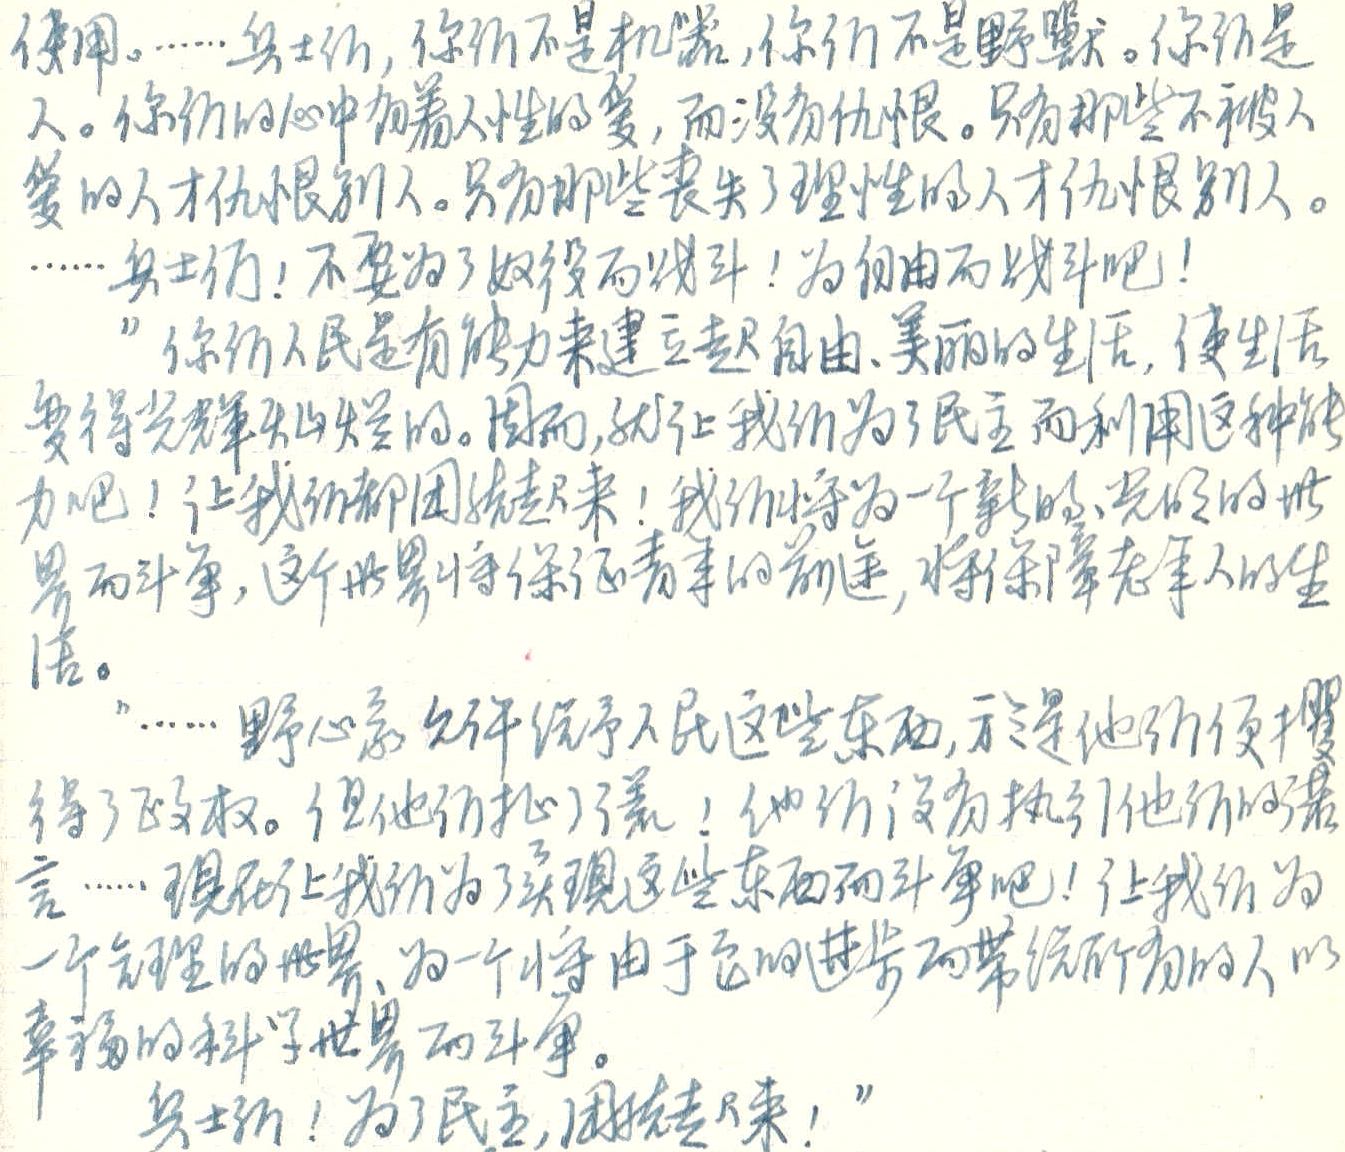 使用。……兵士们，你们不是机器，你们不是野獸。你们是
人。你们的心中有着人性的爱，而没有仇恨。只有那些不被人
爱的人才仇恨别人。只有那些丧失了理性的人才仇恨别人。
……兵士们！不要为了奴役而战斗！为自由而战斗吧！
”你们人民是有能力来建立起自由、美丽的生活，使生活
变得光輝灿烂的。因而，就让我们为了民主而利用这种能
力吧！让我们都团结起来！我们将为一个新的、光明的世
界而斗争，这个世界将保证青年的前途，将保障老年人的生
活。
”……野心家允许给予人民这些东西，于是他们便攫
得了政权。但他们扯了谎！他们没有执行他们的诺
言……現在让我们为了实現这些东西而斗争吧！让我们为
一个合理的世界、为一个将由于它的进步而带给所有的人以
幸福的科学世界而斗争。
兵士们！为了民主，团结起来！”